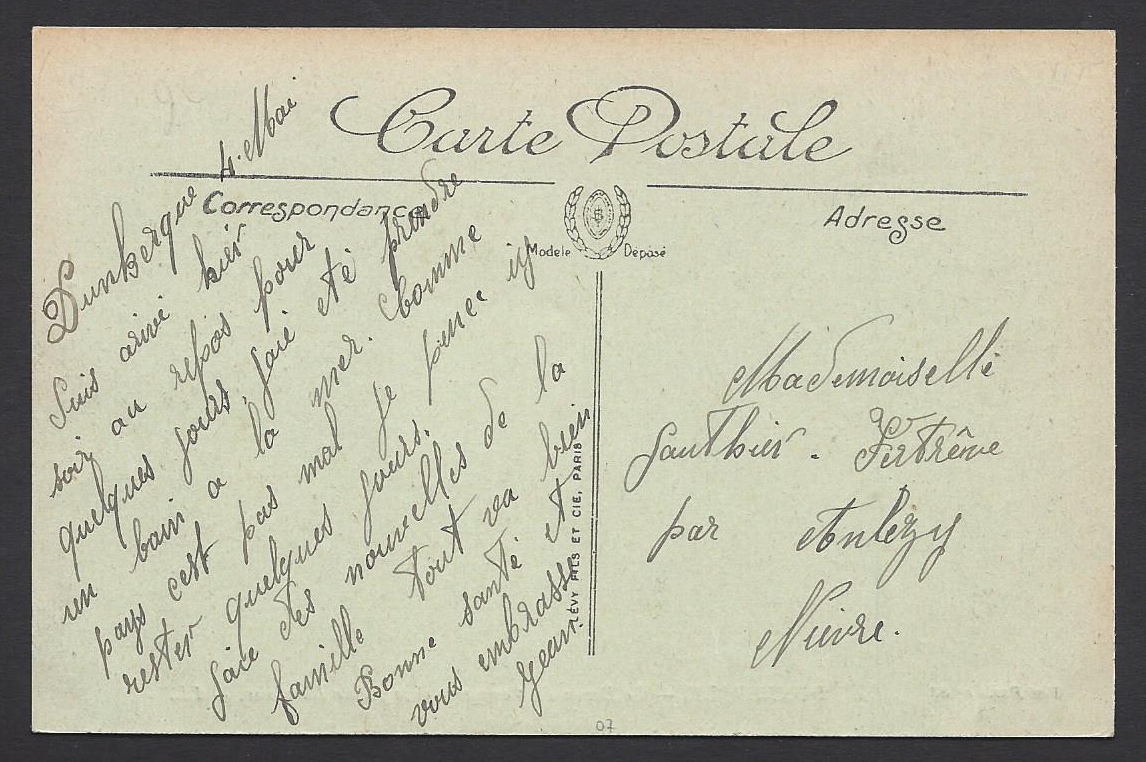 Carte Postale
Correspondance
Adresse
Modele Déposé
Dunkerque 4. Mai
Suis arivé hier
soir au repos pour
quelques jours, jaié eté prendre
un bain a la mer. Comme
pays cest pas mal je pence iy
rester quelques jours.
Jaie des nouvelles de la
famille tout va bien
Bonne santé et
vous embrasse
Jean.
Mademoiselle
Gauthier. Fertrêve
par Anlezy
Nievre.
LÉVY FILS ET CIE, PARIS
07